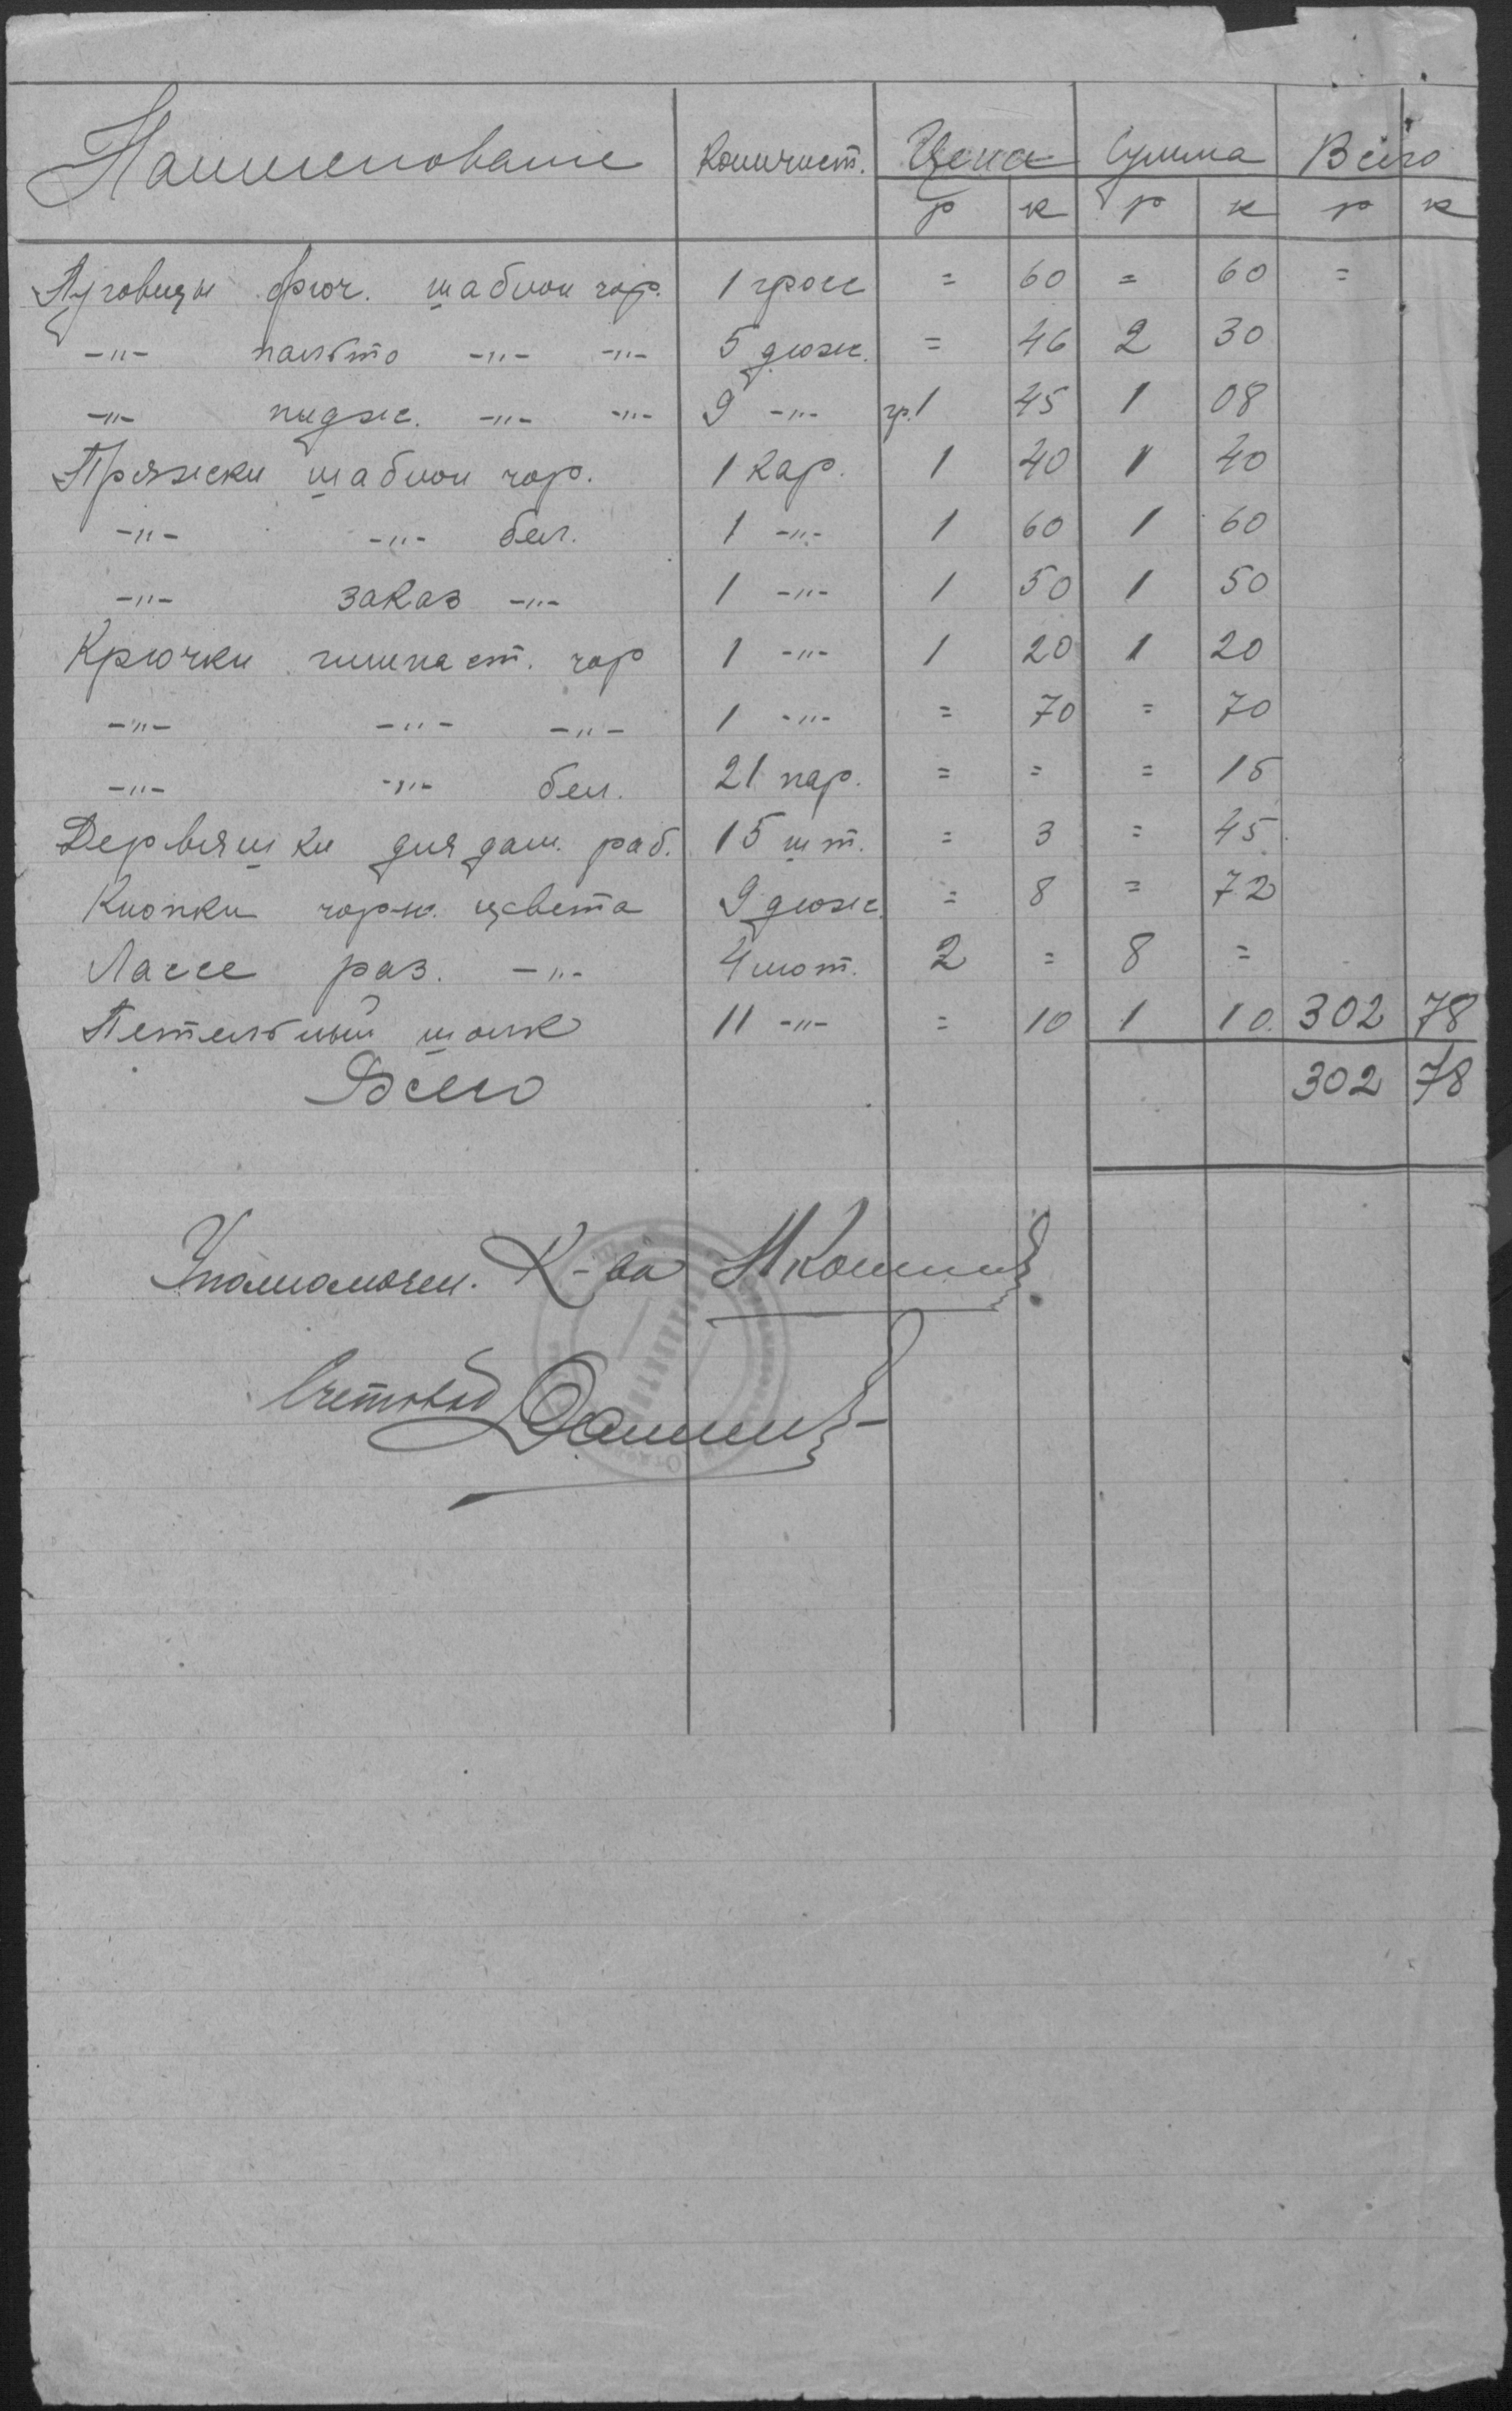 Наименование Количест. Цена Сумма Всего
р к р к р к
Пуговицы брюч. шаблон чор. 1 гросс = 60 = 60 =
-"- пальто -"- -"- 5 дюж. = 46 2 30
-"- пидж. -"- -"- 9 -"- гр. 1 45 1 08
Пряжски шаблон чор. 1 кар. 1 40 1 40
-"- -"- бел. 1 -"- 1 60 1 60
-"- заказ -"- 1 -"- 1 50 1 50
Крючки гимнаст. чор 1 -"- 1 20 1 20
-"- -"- -"- 1 -"- = 70 = 70
-"- -"- бел. 21 пар. = = = 15
Дервяшки для дам. раб. 15 шт. = 3 = 45
Кнопки чорн. цвета 9 дюж. = 8 = 72
Лассе раз. -"- 4 мот. 2 = 8 =
Петельный шолк 11 -"- = 10 1 10. 302 78
Всего 302 78
Уполномочен. К-ва
Счетовод